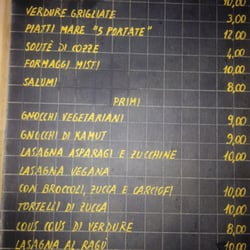 10,00
VERDURE GRIGLIATE 3,00
PIATTI MARE "5 PORTATE" 12,00
SOUTÈ DI COZZE 4,00
FORMAGGI MISTI 10,00
SALUMI 8,00
PRIMI
GNOCCHI VEGETARIANI 9,00
GNOCCHI DI KAMUT 9,00
LASAGNA ASPARAGI E ZUCCHINE 10,00
LASAGNA VEGANA
CON BROCCOLI, ZUCCA E CARCIOFI 10,00
TORTELLI DI ZUCCA 10,00
COUS COUS DI VERDURE 8,00
LASAGNA AL RAGÙ 10,00